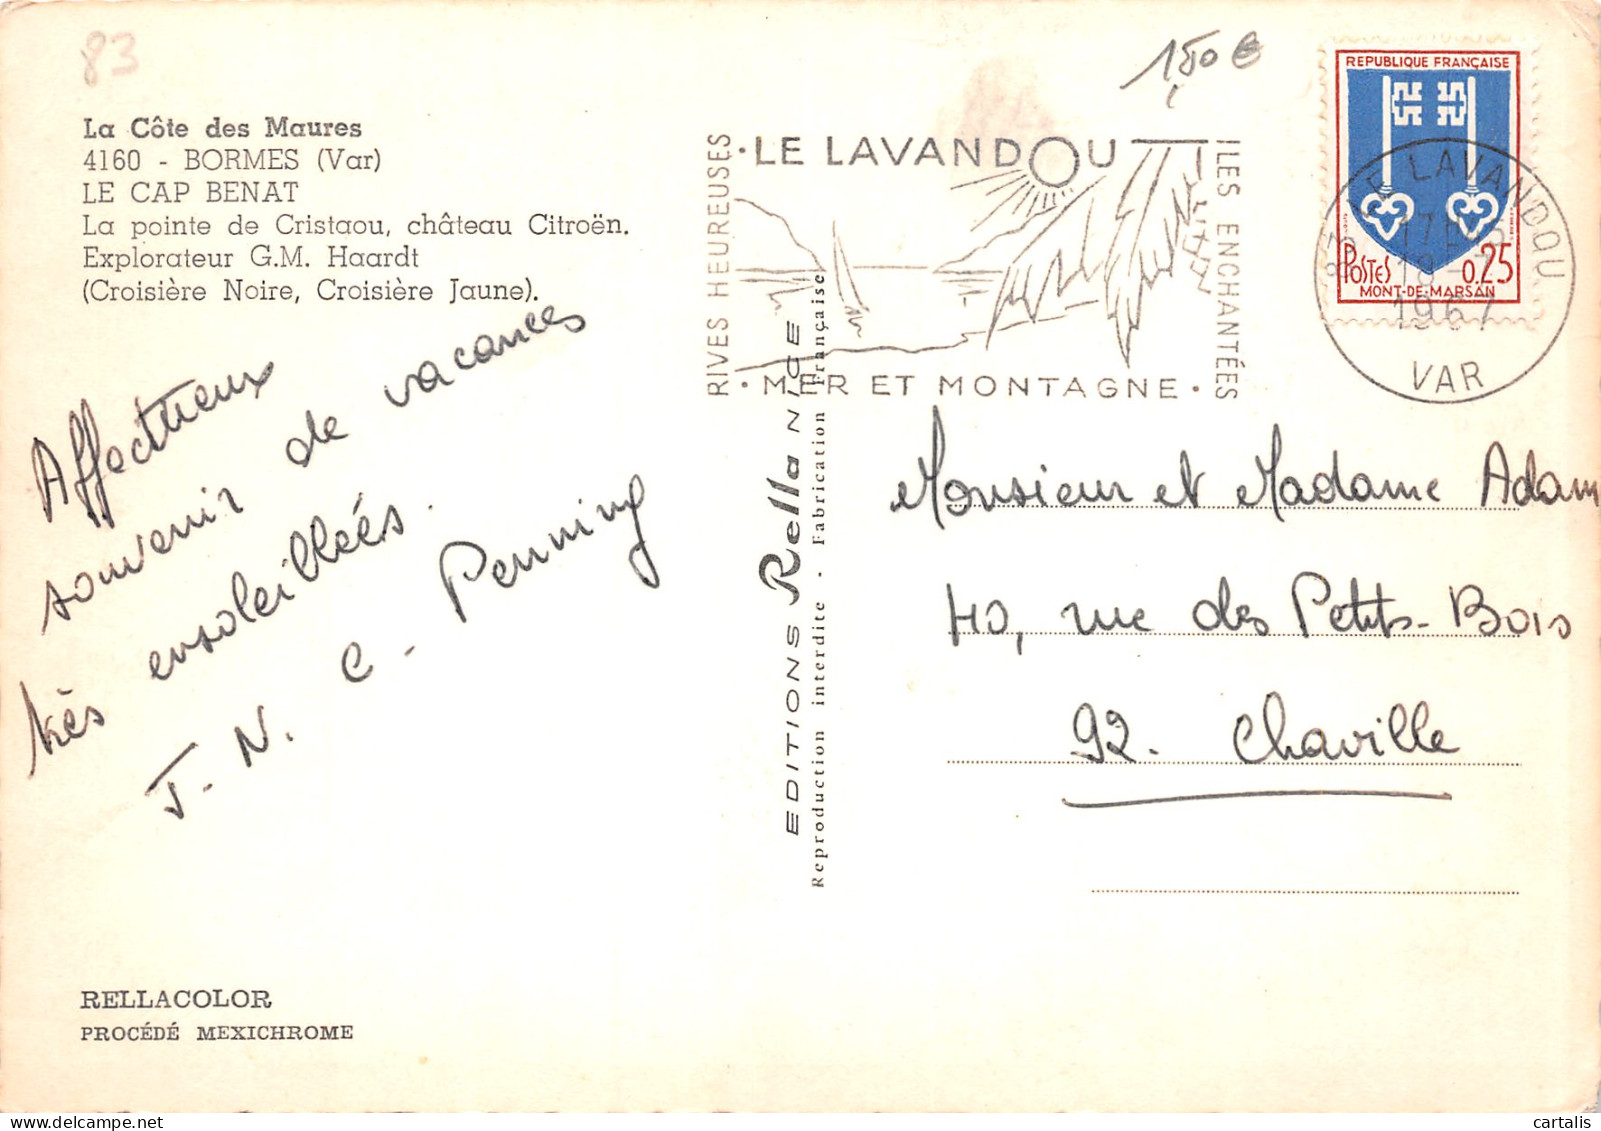 83
1,50 €
La Côte des Maures
4160 - BORMES (Var)
LE CAP BENAT
La pointe de Cristaou, château Citroën.
Explorateur G.M. Haardt
(Croisière Noire, Croisière Jaune).
Affectueux
souvenir de vacances
très ensoleillées.
J. N. C. Penning
RELLACOLOR
PROCÉDÉ MEXICHROME
EDITIONS Rella NICE
Reproduction interdite - Fabrication Française
RIVES HEUREUSES
· LE LAVANDOU
· MER ET MONTAGNE ·
ILES ENCHANTÉES
REPUBLIQUE FRANÇAISE
POSTES 0.25
MONT-DE-MARSAN
83 LE LAVANDOU
19-7
1967
VAR
Monsieur et Madame Adam
40, rue des Petits-Bois
92. Chaville
delcampe.net
cartalis